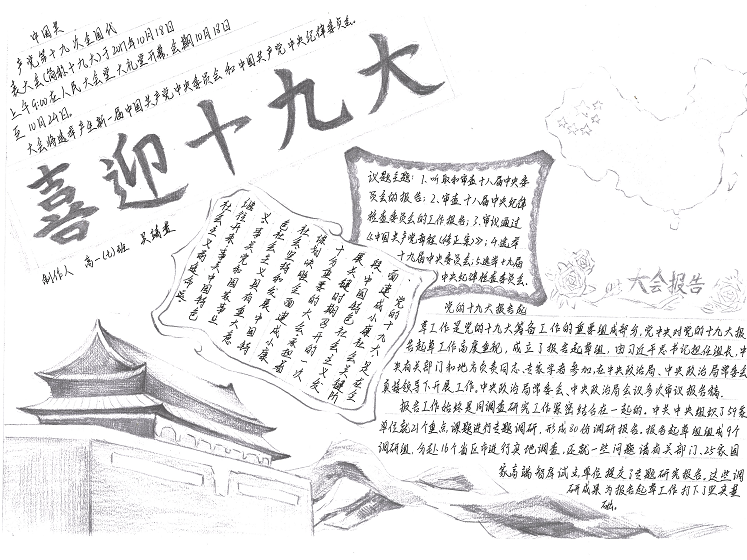 中国共
产党第十九次全国代
表大会(简称十九大)于2017年10月18日
上午9:00在人民大会堂大礼堂开幕,会期10月18日
至10月24日。
大会将选举产生新一届中国共产党中央委员会和中国共产党中央纪律委员会。
喜迎十九大
制作人 高一(七)班
议题主题:1.听取和审查十八届中央委
员会的报告;2.审查十八届中央纪律
检查委员会的工作报告;3.审议通过
《中国共产党章程(修正案)》;4.选举
十九届中央委员会;5.选举十九届
中央纪律检查委员会。
一、党的十九大是在全
面建成小康社会关键阶
段、中国特色社会主义发
展关键时期召开的一次
十分重要的大会,承担着
谋划决胜全面建成小康
社会主义
大会报告
党的十九大报告起
草工作是党的十九大筹备工作的重要组成部分,党中央对党的十九大报
告起草工作高度重视,成立了报告起草组,由习近平总书记担任组长,中
央有关部门和地方负责同志、专家学者参加,在中央政治局、中央政治局常委会
直接领导下开展工作,中央政治局常委会、中央政治局会议多次审议报告稿。
报告工作始终是同调查研究工作紧密结合在一起的。中共中央组织了59家
单位就21个重点课题进行专题调研,形成80份调研报告。报告起草组组成9个
调研组,分赴16个省区市进行实地调查,还就一些问题请有关部门、25家国
家高端智库试点单位提交了专题研究报告。这些调
研成果为报告起草工作打下了坚实基
础。